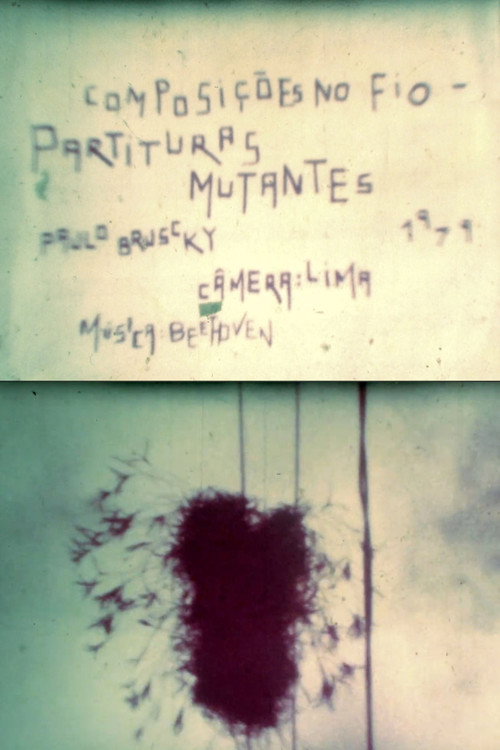 COMPOSIÇÕES NO FIO -
PARTITURAS
MUTANTES
PAULO BRUSCKY 1979
CÂMERA: LIMA
MÚSICA: BEETHOVEN